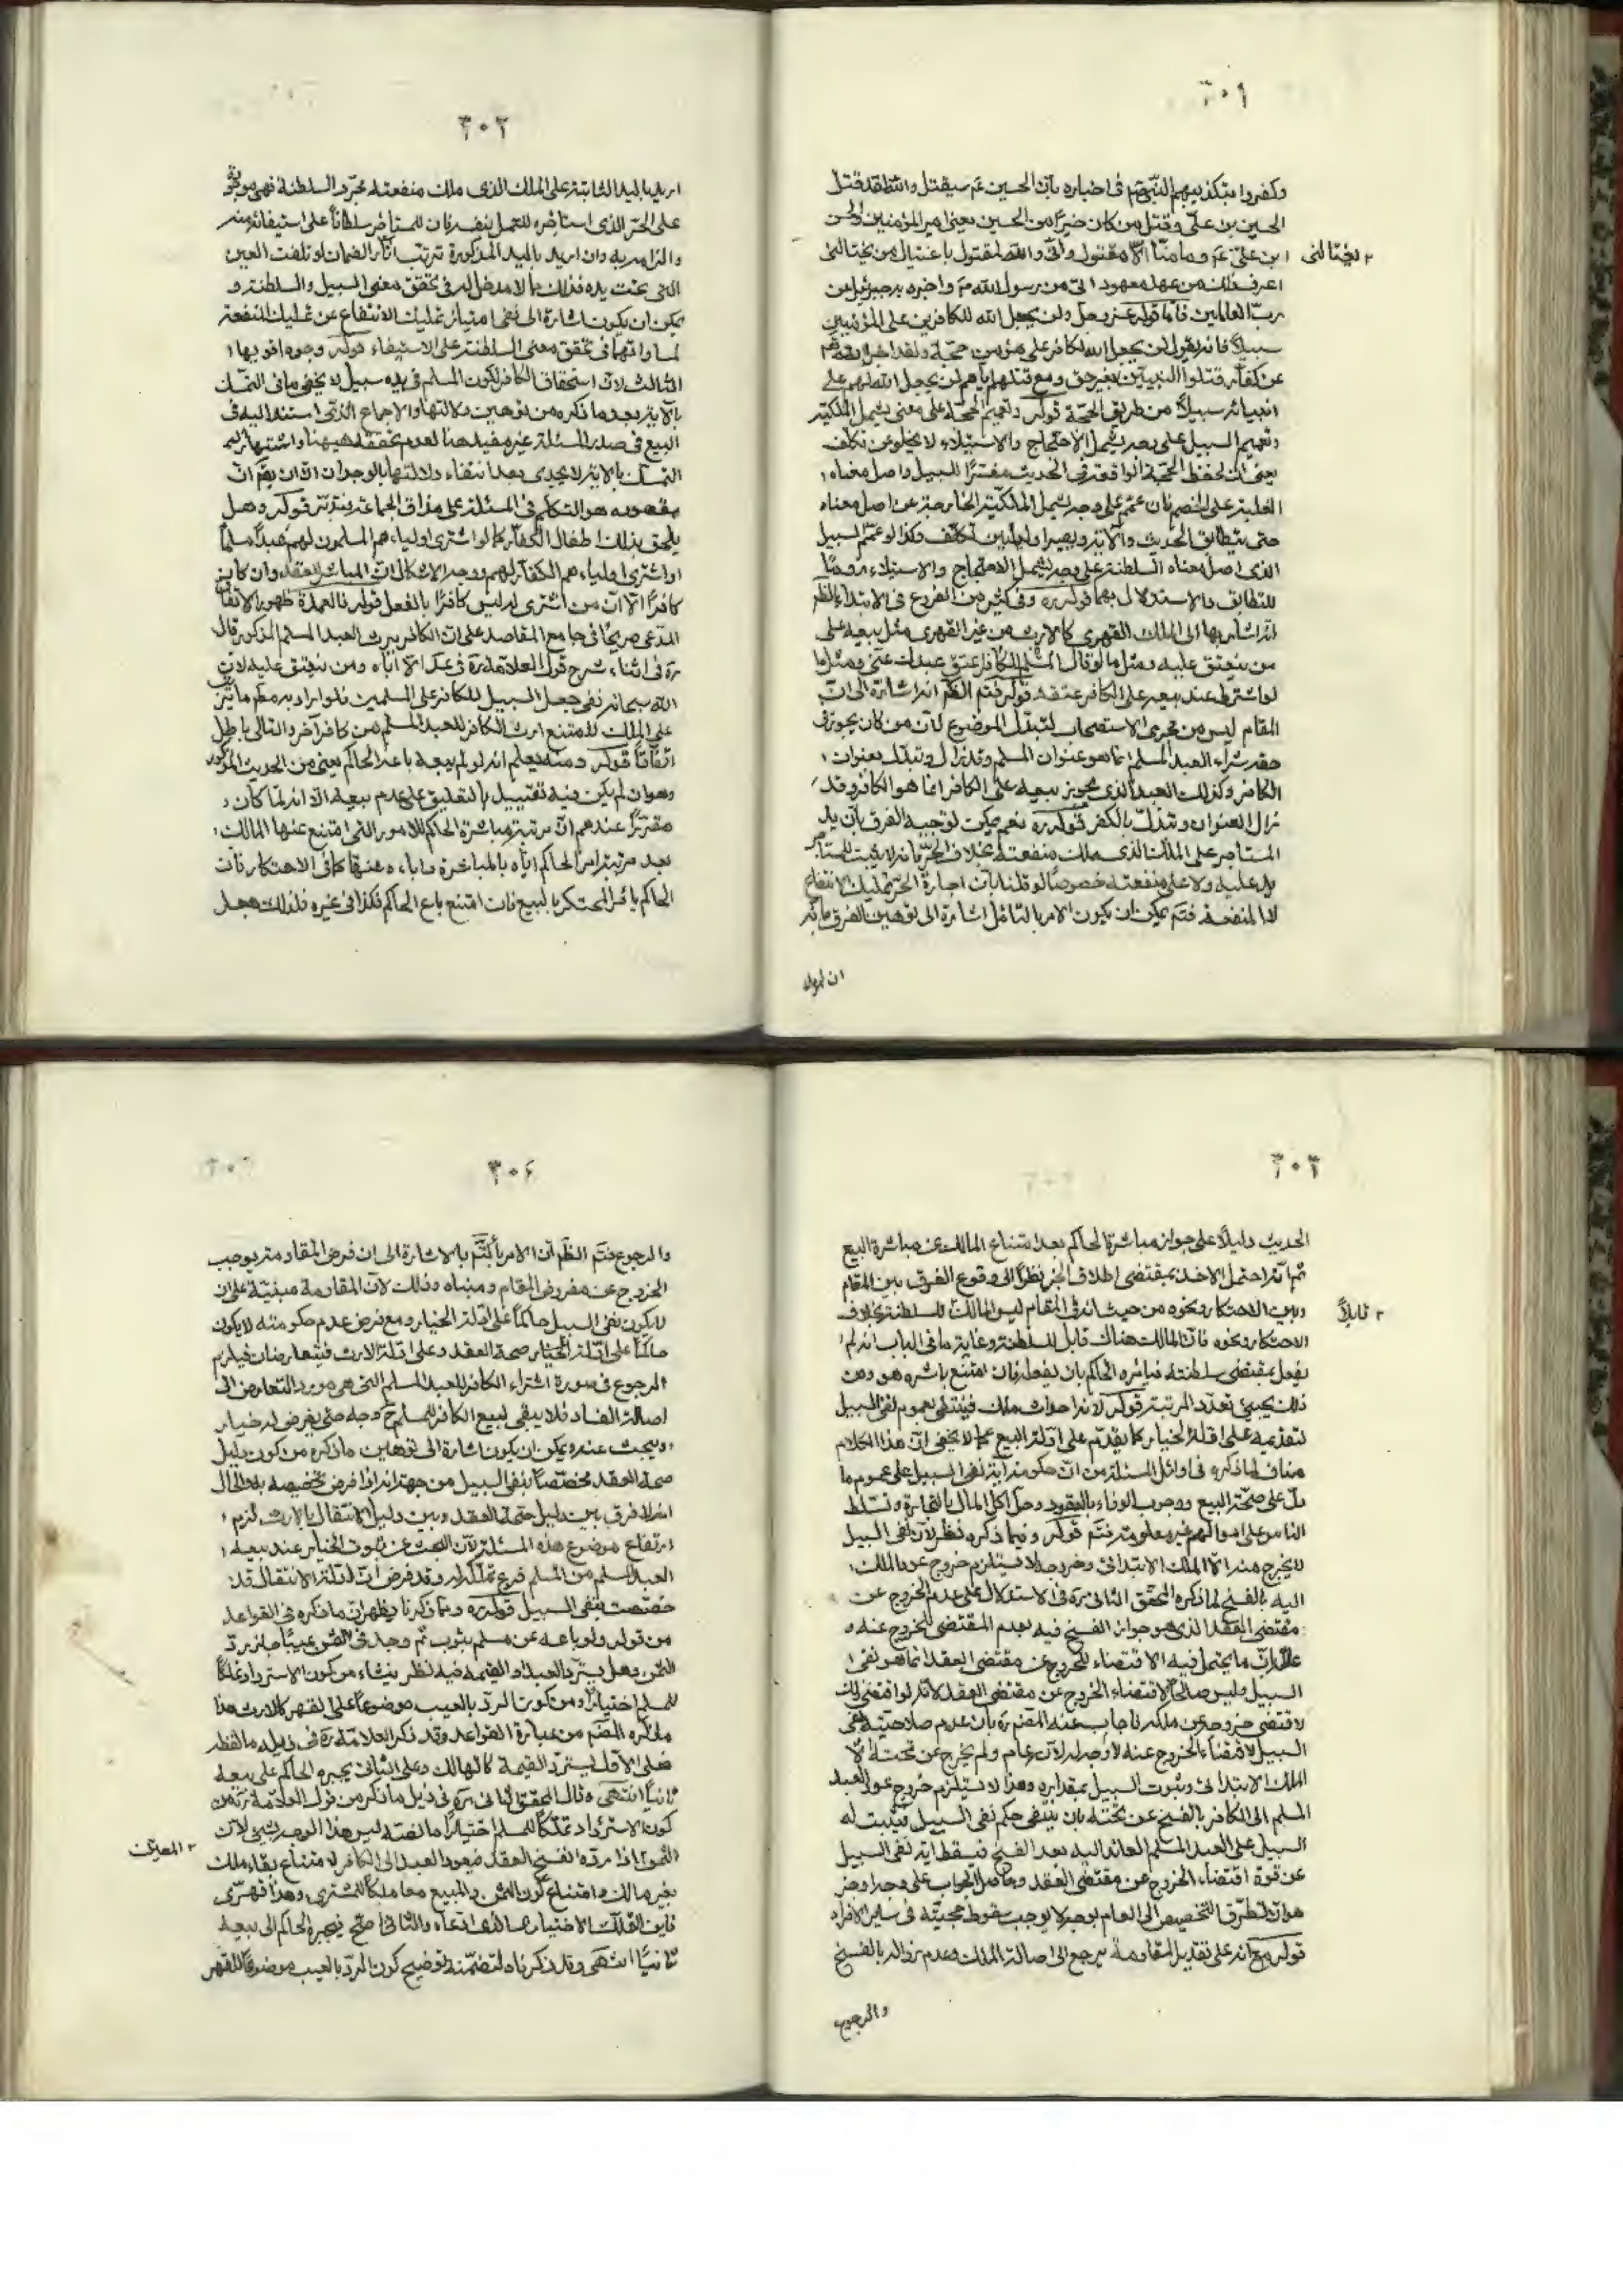 ٣٠١
وكفروا بتكذيبهم النبي ص في اخباره بأن الحسين ع سيقتل والله لقد قتل
الحسين بن علي وقتل من كان خيرًا من الحسين يعني امير المؤمنين والحسن
ابن علي ع وما منا الا مقتول واني والله لمقتول باغتيال من يغتالني
اعرف ذلك من عهد معهود الي من رسول الله ص واخبره به جبرئيل من
ربّ العالمين فاما قوله عز وجل ولن يجعل الله للكافرين على المؤمنين
سبيلاً فانه يقول لن يجعل الله لكافر على مؤمن حجة ولقد اخبر الله تعم
عن كفار قتلوا النبيين بغير حق ومع قتلهم اياهم لن يجعل الله لهم على
انبيائه سبيلاً من طريق الحجة قوله وتعميم الحجة على معنى يشمل الملكية
وتعميم السبيل على وجه يشمل الاحتجاج والاستيلاء لا يخلو عن تكلف
يعني ان لفظ الحجة الواقعة في الحديث مفسرًا للسبيل واصل معناه
الغلبة على الخصم فان عمم على وجه يشمل الملكية الخارجة عن اصل معناه
حتى يتطابق الحديث والآية
الذي اصل معناه السلطنة على وجه يشمل الاحتجاج والاستيلاء
للتطابق والاستدلال بهما قوله ره وفي كثير من الفروع في الابتداء الظم
انه اشار بها الى الملك القهري كالارث من غير القهري مثل بيعه على
من ينعتق عليه ومثل ما لو قال المسلم للكافر اعتق عبدك عني ومثل ما
لو اشترط عند بيعه على الكافر عتقه قوله فتم الظم انه اشارة الى ان
المقام ليس من مجرى الاستصحاب لتبدل الموضوع لأن من كان يجوز في
حقه شراء العبد المسلم انما هو عنوان المسلم وقد زال وتبدل بعنوان
الكافر وكذلك العبد الذي يجوز بيعه على الكافر انما هو الكافر وقد
زال العنوان وتبدل بالكفر قوله ره نعم يمكن توجيه الفرق بأن يد
المستاجر على الملك الذي ملك منفعته بخلاف الحر فانه لا يثبت للمستاجر
يد عليه ولا على منفعته خصوصا لو قلنا بان اجارة الحر تمليك الانتفاع
لا المنفعة فتم يمكن ان يكون الامر بالتامل اشارة الى توهين الفرق بانه
ان اريد
٢ يغتالني
٣٠٢
اريد باليد الثابتة على الملك الذي ملك منفعته مجرد السلطنة فهي موجودة
على الحر الذي استاجره للعمل بنفسه فان للمستاجر سلطانًا على استيفائه منه
والزامه به وان اريد باليد المذكورة ترتب اثار الضمان لو تلفت العين
التي تحت يده فذلك مما لا مدخل له في تحقق معنى السبيل والسلطنة و
يمكن ان يكون اشارة الى نفي امتياز تمليك الانتفاع عن تمليك المنفعة
لمساواتهما في تحقق معنى السلطنة على الاستيفاء قوله وجوه اقويها
الثالث لان استحقاق الكافر لكون المسلم في يده سبيل لا يخفى ما في التمسك
بالآية بعد ما ذكره من توهين دلالتها والاجماع الذي استند اليه في
البيع في صدر المسئلة غير مفيد هنا لعدم تحققه هيهنا واشتهار
التمسك بالآية لا يجدي بعد انتفاء دلالتها بالوجدان الا ان يقم ان
مقصوده هو التكلم في المسئلة على مذاق الجماعة فتدبّر قوله وهل
يلحق بذلك اطفال الكفار كما لو اشترى اولياءهم المسلمون لهم عبدًا مسلمًا
او اشترى اولياءهم الكفار لهم ووجه الاشكال ان المباشر للعقد وان كان
كافرًا الا ان من اشترى له ليس كافرًا بالفعل قوله فالعمدة ظهور الاتفاق
المدعى صريحًا في جامع المقاصد على ان الكافر يرث العبد المسلم المذكور قال
ره في اثناء شرح قول العلامة ره في عد الاباء ومن ينعتق عليه لان
الله سبحانه نفى جعل السبيل للكافر على المسلمين فلو اراد به مطم ما يترتب
على الملك لامتنع ارث الكافر للعبد المسلم من كافر آخر والتالي باطل
اتفاقًا قوله ومنه يعلم انه لو لم يبعه باعه الحاكم يعني من الحديث المذكور
وهو وان لم يكن فيه تقييد بالتعليق على عدم بيعه الا انه لما كان
مقررًا عندهم ان مرتبة مباشرة الحاكم للامور التي امتنع عنها المالك
بعد مرتبة امر الحاكم اياه بالمباشرة واباءه عنها كما في الاحتكار فان
الحاكم يأمر المحتكر بالبيع فان امتنع باع الحاكم فكذا في غيره فلذلك جعل
٣٠٣
الحديث دليلاً على جواز مباشرة الحاكم بعد امتناع المالك عن مباشرة البيع
ثم انه احتمل الاخذ بمقتضى اطلاق الخبر نظرًا الى وقوع الفرق بين المقام
وبين الاحتكار ونحوه من حيث انه في المقام ليس المالك للسلطنة بخلاف
الاحتكار ونحوه فان المالك هناك قابل للسلطنة وغاية ما في الباب انه لم
يفعل بمقتضى سلطنته فيامره الحاكم بان يفعل فان امتنع باشره هو ومن
ذلك يجيئ تعدد المرتبة قوله لانه احداث ملك فينتفي بعموم نفي السبيل
لتقديمه على ادلة الخيار كما يقدم على ادلة البيع مما لا يخفى ان هذا الكلام
مناف لما ذكره في اوائل المسئلة من ان حكومة آية نفي السبيل على عموم ما
دل على صحة البيع ووجوب الوفاء بالعقود وحل اكل المال بالتجارة وتسلط
الناس على اموالهم غير معلومة فتم قوله وفيما ذكره نظر لأن نفي السبيل
لا يخرج منه الا الملك الابتدائي وخروجه لا يستلزم خروج عود الملك
اليه بالفسخ لما ذكره المحقق الثاني ره في الاستدلال على عدم الخروج عن
مقتضى العقد الذي هو جواز الفسخ فيه بعدم المقتضي للخروج عنه و
علله بان ما يحتمل فيه الاقتضاء للخروج عن مقتضى العقد انما هو نفي
السبيل وليس صالحًا لاقتضاء الخروج عن مقتضى العقد لانه لو اقتضى ذلك
لاقتضى خروجه عن ملكه فاجاب عنه المصم ره بان عدم صلاحية نفي
السبيل لاقتضاء الخروج عنه لا وجه له لانه عام ولم يخرج عن تحته الا
الملك الابتدائي وثبوت السبيل بمقداره وهذا لا يستلزم خروج عود العبد
المسلم الى الكافر بالفسخ عن تحته بان ينتفي حكم نفي السبيل فيثبت له
السبيل على العبد المسلم العائد اليه بعد الفسخ فيسقط آية نفي السبيل
عن قوة اقتضاء الخروج عن مقتضى العقد وحاصل الجواب على وجه اوجز
هو ان تطرق التخصيص الى العام بوجه لا يوجب سقوط حجيته في سائر الافراد
قوله مع انه على تقدير المقاومة يرجع الى اصالة الملك وعدم زواله بالفسخ
والرجوع
٢ قابلاً
٣٠٤
والرجوع فتم الظم ان الامر بالتم بالاشارة الى ان فرض المقاومة يوجب
الخروج عن مفروض المقام ومبناه وذلك لان المقاومة مبنية على ان
لا يكون نفي السبيل حاكمًا على ادلة الخيار ومع فرض عدم حكومته لا يكون
حاكمًا على ادلة صحة العقد وعلى ادلة الارث فيتعارضان فيلزم
الرجوع في صورة اشتراء الكافر للعبد المسلم التي هي مورد التعارض الى
اصالة الفساد فلا يبقى لبيع الكافر للمسلم ح وجه حتى يفرض له خيار
ويبحث عنه ويمكن ان يكون اشارة الى توهين ما ذكره من كون دليل
صحة العقد مخصصًا بنفي السبيل من جهة انه اذا فرض تخصيصه بلا اشكال
اذ لا فرق بين دليل صحة العقد وبين دليل الانتقال بالارث لزم
ارتفاع موضوع هذه المسئلة لأن البحث عن ثبوت الخيار عند بيعه
العبد المسلم من المسلم فرع تملكه له وقد فرض ان ادلة الانتقال قد
خصصت بنفي السبيل قوله ره ومما ذكرنا يظهر ان ما ذكره في القواعد
من قوله ولو باعه من مسلم بثوب ثم وجد في الثمن عيبًا جاز رد
الثمن وهل يسترد العبد او القيمة فيه نظر ينشاء من كون الاسترداد تملكًا
للمسلم اختيارًا ومن كون الرد بالعيب موضوعًا على القهر كالارث هذا
ما ذكره المصم من عبارة القواعد وقد ذكر العلامة ره في ذيله ما لفظه
فعلى الاول يسترد القيمة كالهالك وعلى الثاني يجبره الحاكم على بيعه
ثانيًا انتهى وقال المحقق الثاني ره في ذيل ما ذكر من قول العلامة ره من
كون الاسترداد تملكًا للمسلم اختيارًا ما لفظه ليس هذا الوجه بشيئ لأن
الثمن اذا رده انفسخ العقد فيعود العبد الى الكافر لامتناع بقاء ملك
بغير مالك وامتناع كون الثمن والمبيع معا ملكًا للمشتري وهذا قهري
فاين التملك الاختياري الذي ادعاه والثاني اصح فيجبره الحاكم الى بيعه
ثانيًا انتهى وقد ذكرناه لتضمنه توضيح كون الرد بالعيب موضوعًا للقهر